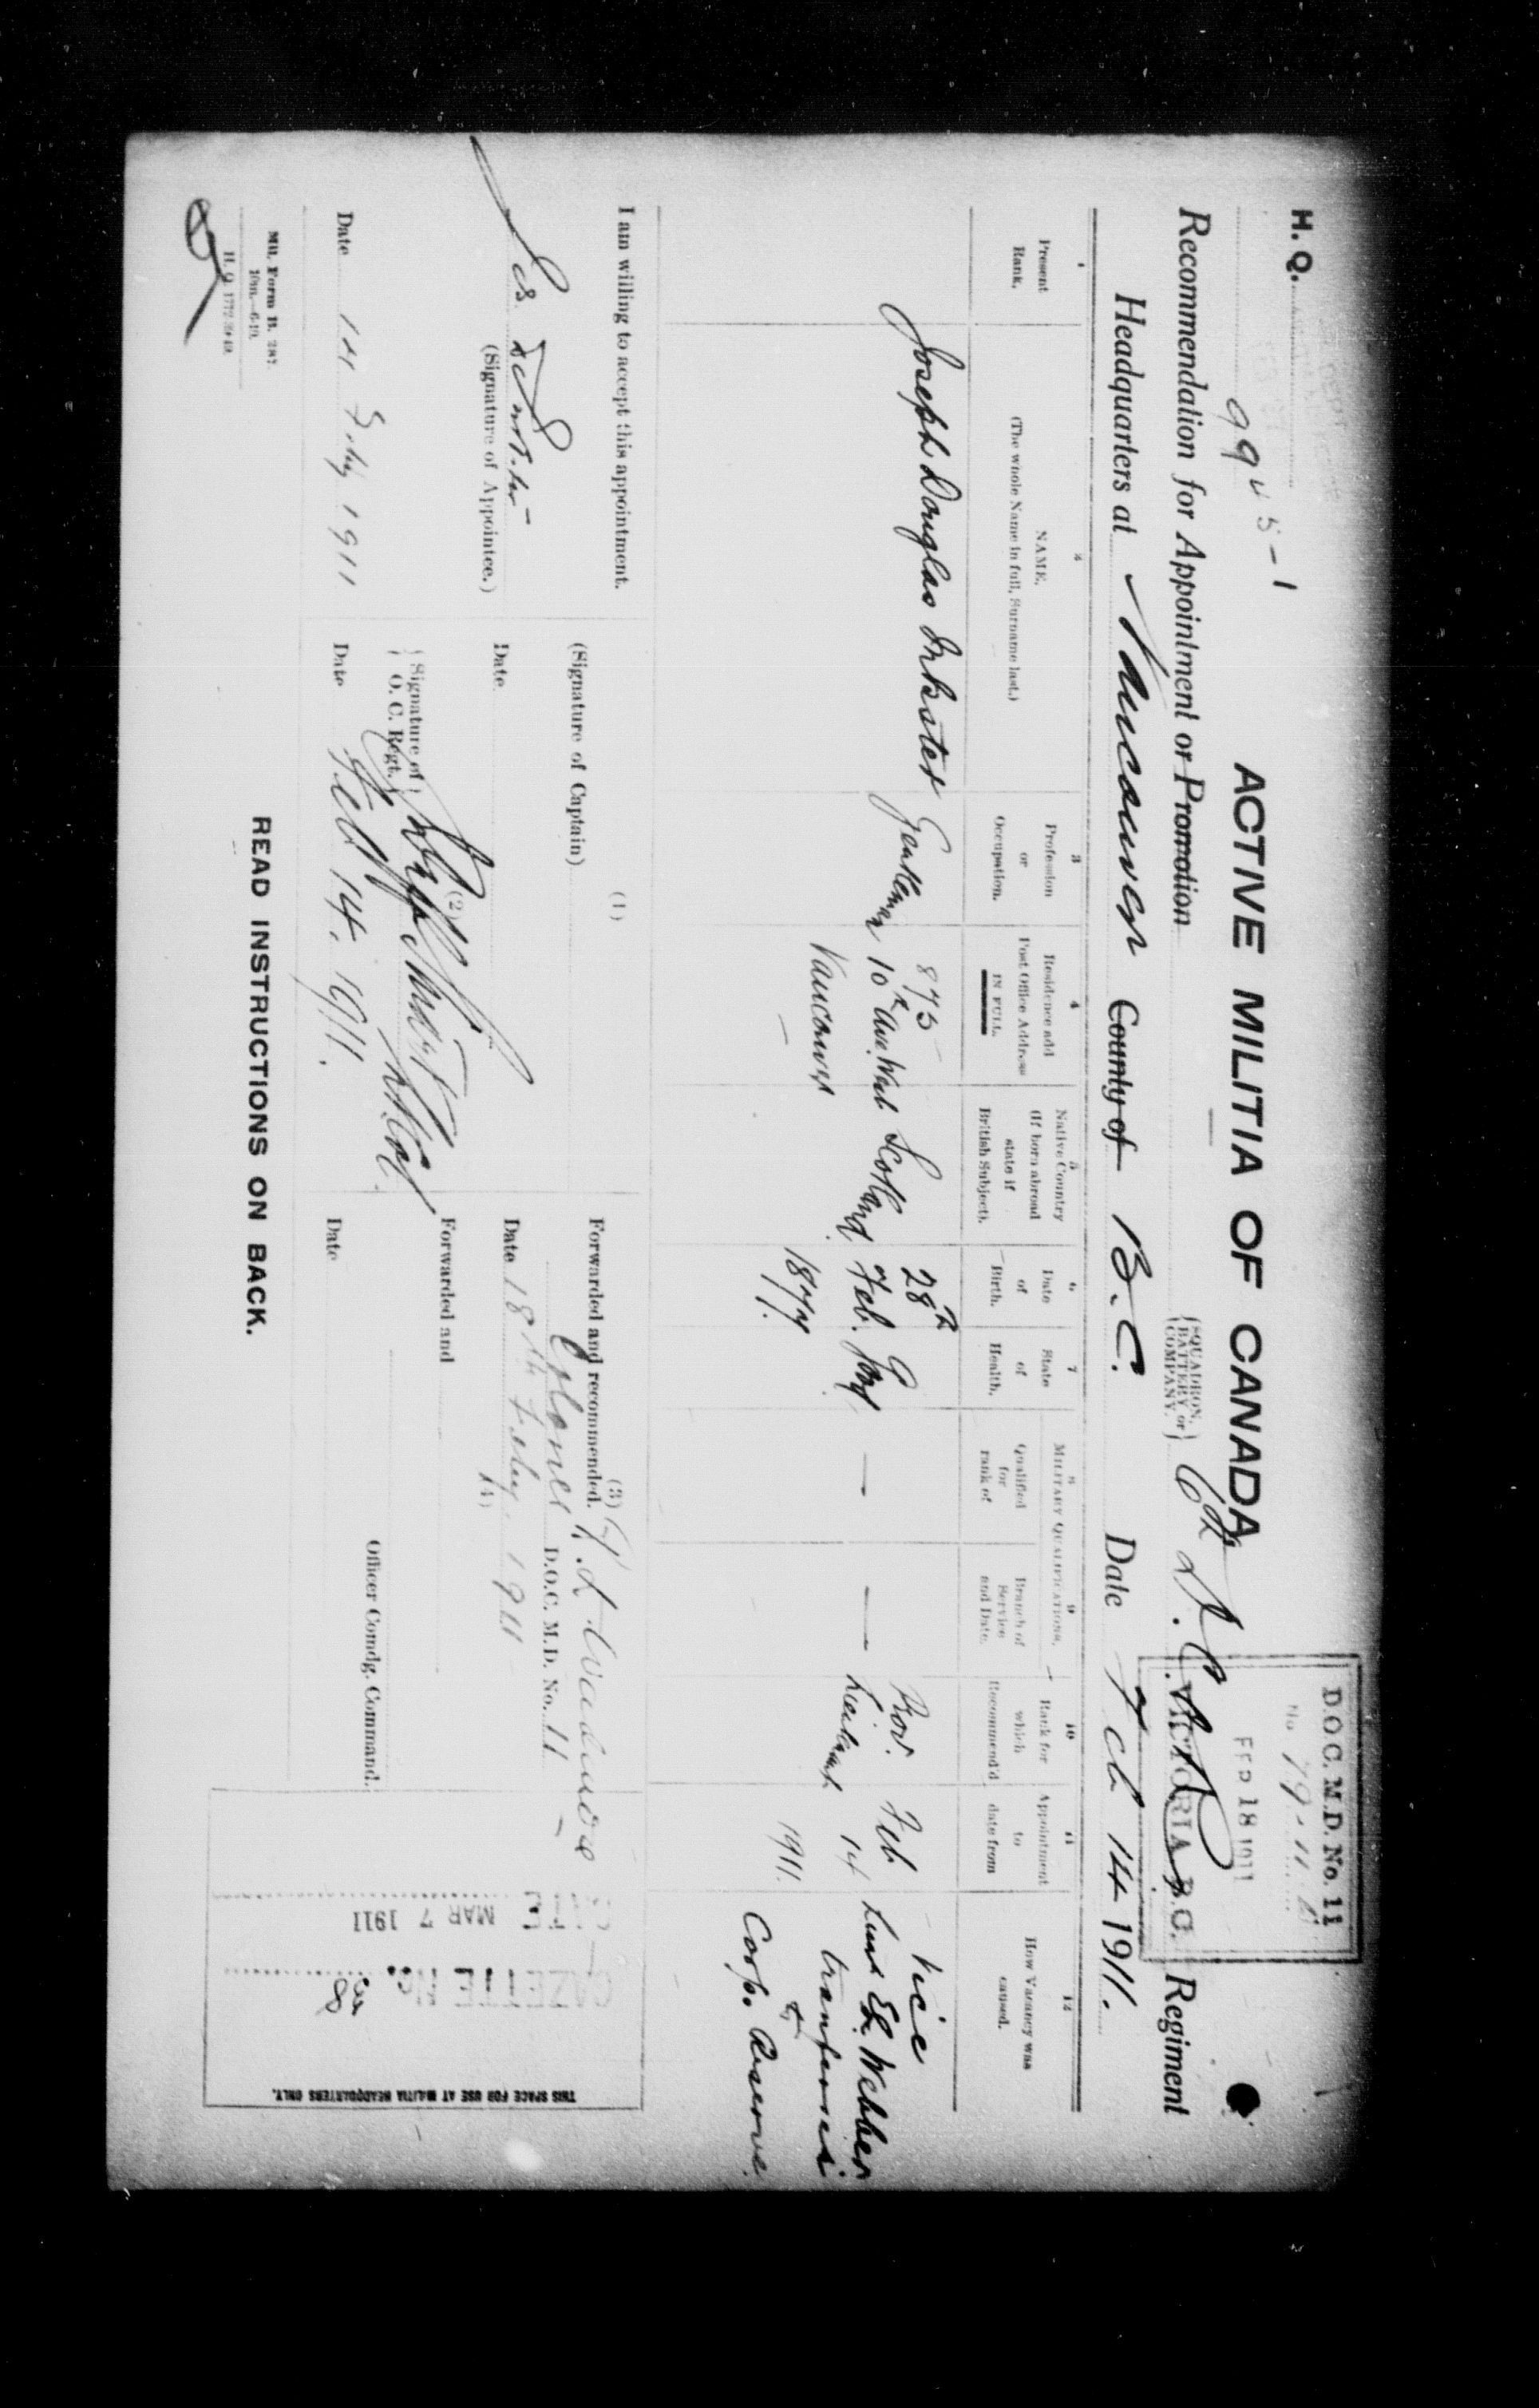 H. Q. 9945-1
D.O.C. M.D. No. 11
No
FEB 18 1911
VICTORIA B.C.
ACTIVE MILITIA OF CANADA
Recommendation for Appointment or Promotion
{SQUADRON, BATTERY or COMPANY.} 6th D. C. O. R. Regiment
Headquarters at Vancouver County of B.C. Date Feb 14 1911.
1
Present Rank.
2
NAME.
(The whole Name in full, Surname last.)
3
Profession or Occupation.
4
Residence and Post Office Address IN FULL.
5
Native Country (If born abroad state if British Subject).
6
Date of Birth.
7
State of Health.
MILITARY QUALIFICATIONS.
8
Qualified for rank of
9
Branch of Service and Date.
10
Rank for which Recommend'd
11
Appointment to date from
12
How Vacancy was caused.
Joseph Douglas Inkster
Gentleman
875
10th Ave. West
Vancouver
Scotland
28th
Feb.
1877.
Good
—
—
Prov.
Lieutenant
Feb.
14
1911.
Vice
Lieut E.L. Webber
transferred
to
Corps. Reserve.
I am willing to accept this appointment.
(Signature of Appointee.)
Date 14 Feby 1911
(1)
(Signature of Captain)
Date
(2)
{Signature of O. C. Regt.}
Date Feb 14. 1911.
(3)
Forwarded and recommended.
Colonel D.O.C. M.D. No. 11
Date 18th Feby. 1911
(4)
Forwarded and
Officer Comdg. Command.
Date
DATE MAR 7 1911
GAZETTE No.
THIS SPACE FOR USE AT MILITIA HEADQUARTERS ONLY.
Mil. Form B. 287.
H. Q. 1772-39-49.
READ INSTRUCTIONS ON BACK.